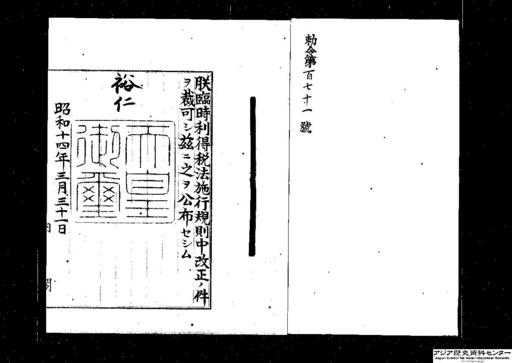 勅令第百七十一號
朕臨時利得税法施行規則中改正ノ件
ヲ裁可シ茲ニ之ヲ公布セシム
裕仁
天皇
御璽
昭和十四年三月三十一日
内閣
アジア歴史資料センター
Japan Center for Asian Historical Records